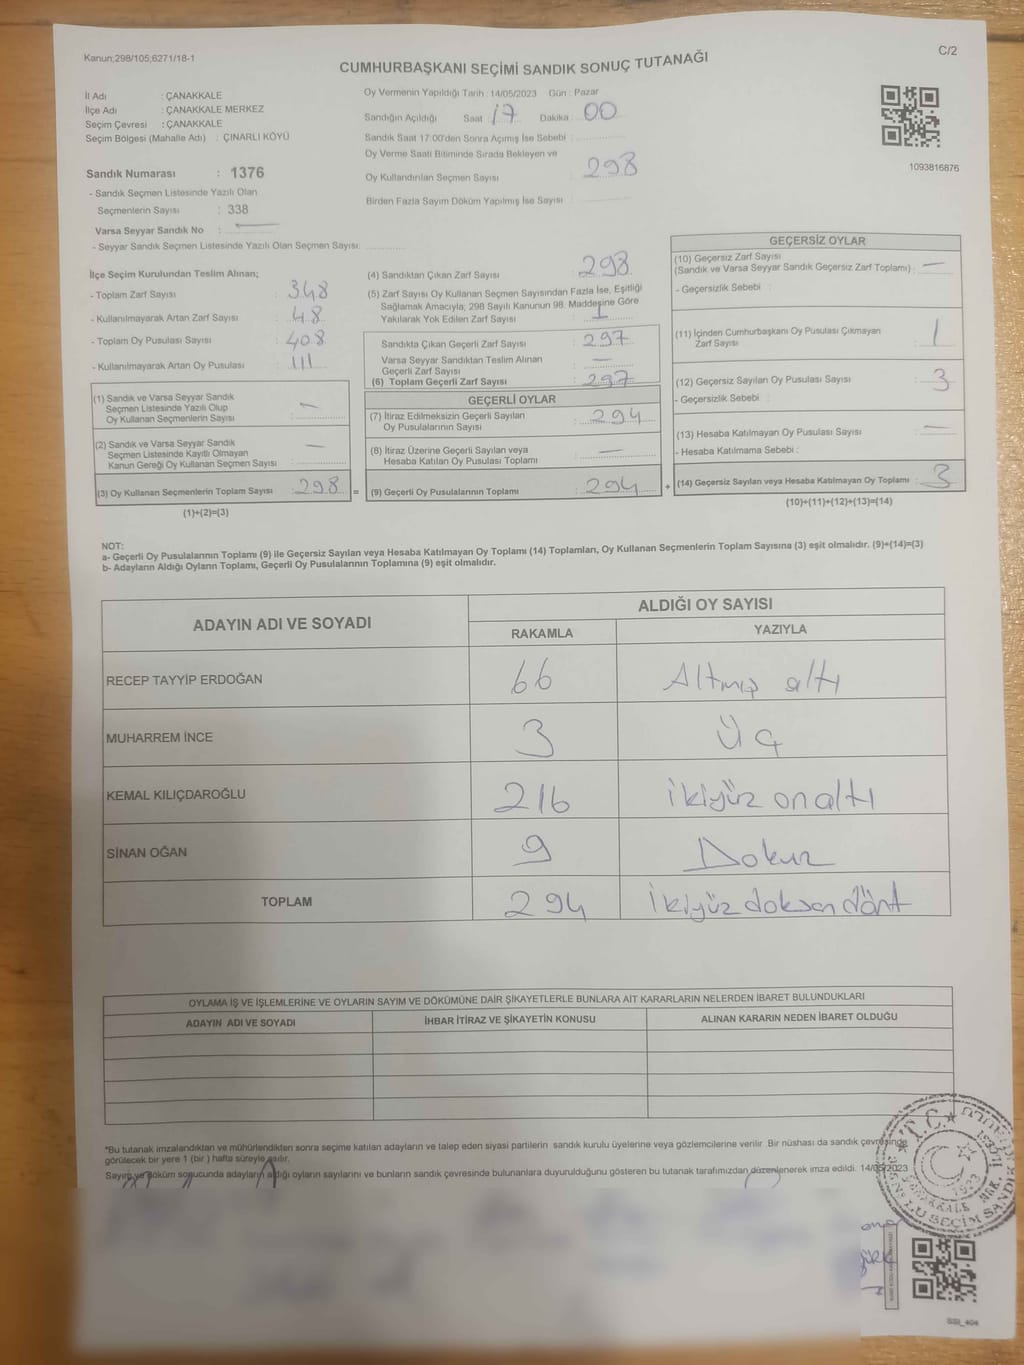 Kanun;298/105;6271/18-1
C/2
CUMHURBAŞKANI SEÇİMİ SANDIK SONUÇ TUTANAĞI
İl Adı : ÇANAKKALE
İlçe Adı : ÇANAKKALE MERKEZ
Seçim Çevresi : ÇANAKKALE
Seçim Bölgesi (Mahalle Adı) : ÇINARLI KÖYÜ
Oy Vermenin Yapıldığı Tarih : 14/05/2023 Gün : Pazar
Sandığın Açıldığı Saat : 17 Dakika : 00
Sandık Saat 17:00'den Sonra Açımış İse Sebebi :
Oy Verme Saati Bitiminde Sırada Bekleyen ve
Oy Kullandırılan Seçmen Sayısı : 298
Birden Fazla Sayım Döküm Yapılmış İse Sayısı :
1093816876
Sandık Numarası : 1376
- Sandık Seçmen Listesinde Yazılı Olan
Seçmenlerin Sayısı : 338
Varsa Seyyar Sandık No : —
- Seyyar Sandık Seçmen Listesinde Yazılı Olan Seçmen Sayısı:
İlçe Seçim Kurulundan Teslim Alınan;
- Toplam Zarf Sayısı : 348
- Kullanılmayarak Artan Zarf Sayısı : 48
- Toplam Oy Pusulası Sayısı : 408
- Kullanılmayarak Artan Oy Pusulası : 111
(1) Sandık ve Varsa Seyyar Sandık
Seçmen Listesinde Yazılı Olup
Oy Kullanan Seçmenlerin Sayısı : —
(2) Sandık ve Varsa Seyyar Sandık
Seçmen Listesinde Kayıtlı Olmayan
Kanun Gereği Oy Kullanan Seçmen Sayısı : —
(3) Oy Kullanan Seçmenlerin Toplam Sayısı : 298 =
(1)+(2)=(3)
(4) Sandıktan Çıkan Zarf Sayısı : 298
(5) Zarf Sayısı Oy Kullanan Seçmen Sayısından Fazla İse, Eşitliği
Sağlamak Amacıyla; 298 Sayılı Kanunun 98. Maddesine Göre
Yakılarak Yok Edilen Zarf Sayısı : 1
Sandıkta Çıkan Geçerli Zarf Sayısı : 297
Varsa Seyyar Sandıktan Teslim Alınan
Geçerli Zarf Sayısı : —
(6) Toplam Geçerli Zarf Sayısı : 297
GEÇERLİ OYLAR
(7) İtiraz Edilmeksizin Geçerli Sayılan
Oy Pusulalarının Sayısı : 294
(8) İtiraz Üzerine Geçerli Sayılan veya
Hesaba Katılan Oy Pusulası Toplamı : —
(9) Geçerli Oy Pusulalarının Toplamı : 294 +
GEÇERSİZ OYLAR
(10) Geçersiz Zarf Sayısı
(Sandık ve Varsa Seyyar Sandık Geçersiz Zarf Toplamı) : —
- Geçersizlik Sebebi :
(11) İçinden Cumhurbaşkanı Oy Pusulası Çıkmayan
Zarf Sayısı : 1
(12) Geçersiz Sayılan Oy Pusulası Sayısı : 3
- Geçersizlik Sebebi :
(13) Hesaba Katılmayan Oy Pusulası Sayısı : —
- Hesaba Katılmama Sebebi :
(14) Geçersiz Sayılan veya Hesaba Katılmayan Oy Toplamı : 3
(10)+(11)+(12)+(13)=(14)
NOT:
a- Geçerli Oy Pusulalarının Toplamı (9) ile Geçersiz Sayılan veya Hesaba Katılmayan Oy Toplamı (14) Toplamları, Oy Kullanan Seçmenlerin Toplam Sayısına (3) eşit olmalıdır. (9)+(14)=(3)
b- Adayların Aldığı Oyların Toplamı, Geçerli Oy Pusulalarının Toplamına (9) eşit olmalıdır.
ADAYIN ADI VE SOYADI
ALDIĞI OY SAYISI
RAKAMLA YAZIYLA
RECEP TAYYİP ERDOĞAN 66 Altmış altı
MUHARREM İNCE 3 Üç
KEMAL KILIÇDAROĞLU 216 ikiyüz onaltı
SİNAN OĞAN 9 Dokuz
TOPLAM 294 İkiyüz doksan dört
OYLAMA İŞ VE İŞLEMLERİNE VE OYLARIN SAYIM VE DÖKÜMÜNE DAİR ŞİKAYETLERLE BUNLARA AİT KARARLARIN NELERDEN İBARET BULUNDUKLARI
ADAYIN ADI VE SOYADI İHBAR İTİRAZ VE ŞİKAYETİN KONUSU ALINAN KARARIN NEDEN İBARET OLDUĞU
*Bu tutanak imzalandıktan ve mühürlendikten sonra seçime katılan adayların ve talep eden siyasi partilerin sandık kurulu üyelerine veya gözlemcilerine verilir. Bir nüshası da sandık çevresinde
görülecek bir yere 1 (bir ) hafta süreyle asılır.
Sayım ve döküm sonucunda adayların aldığı oyların sayılarını ve bunların sandık çevresinde bulunanlara duyurulduğunu gösteren bu tutanak tarafımızdan düzenlenerek imza edildi. 14/05/2023
T.C.
ÇANAKKALE
1923
SSI_404